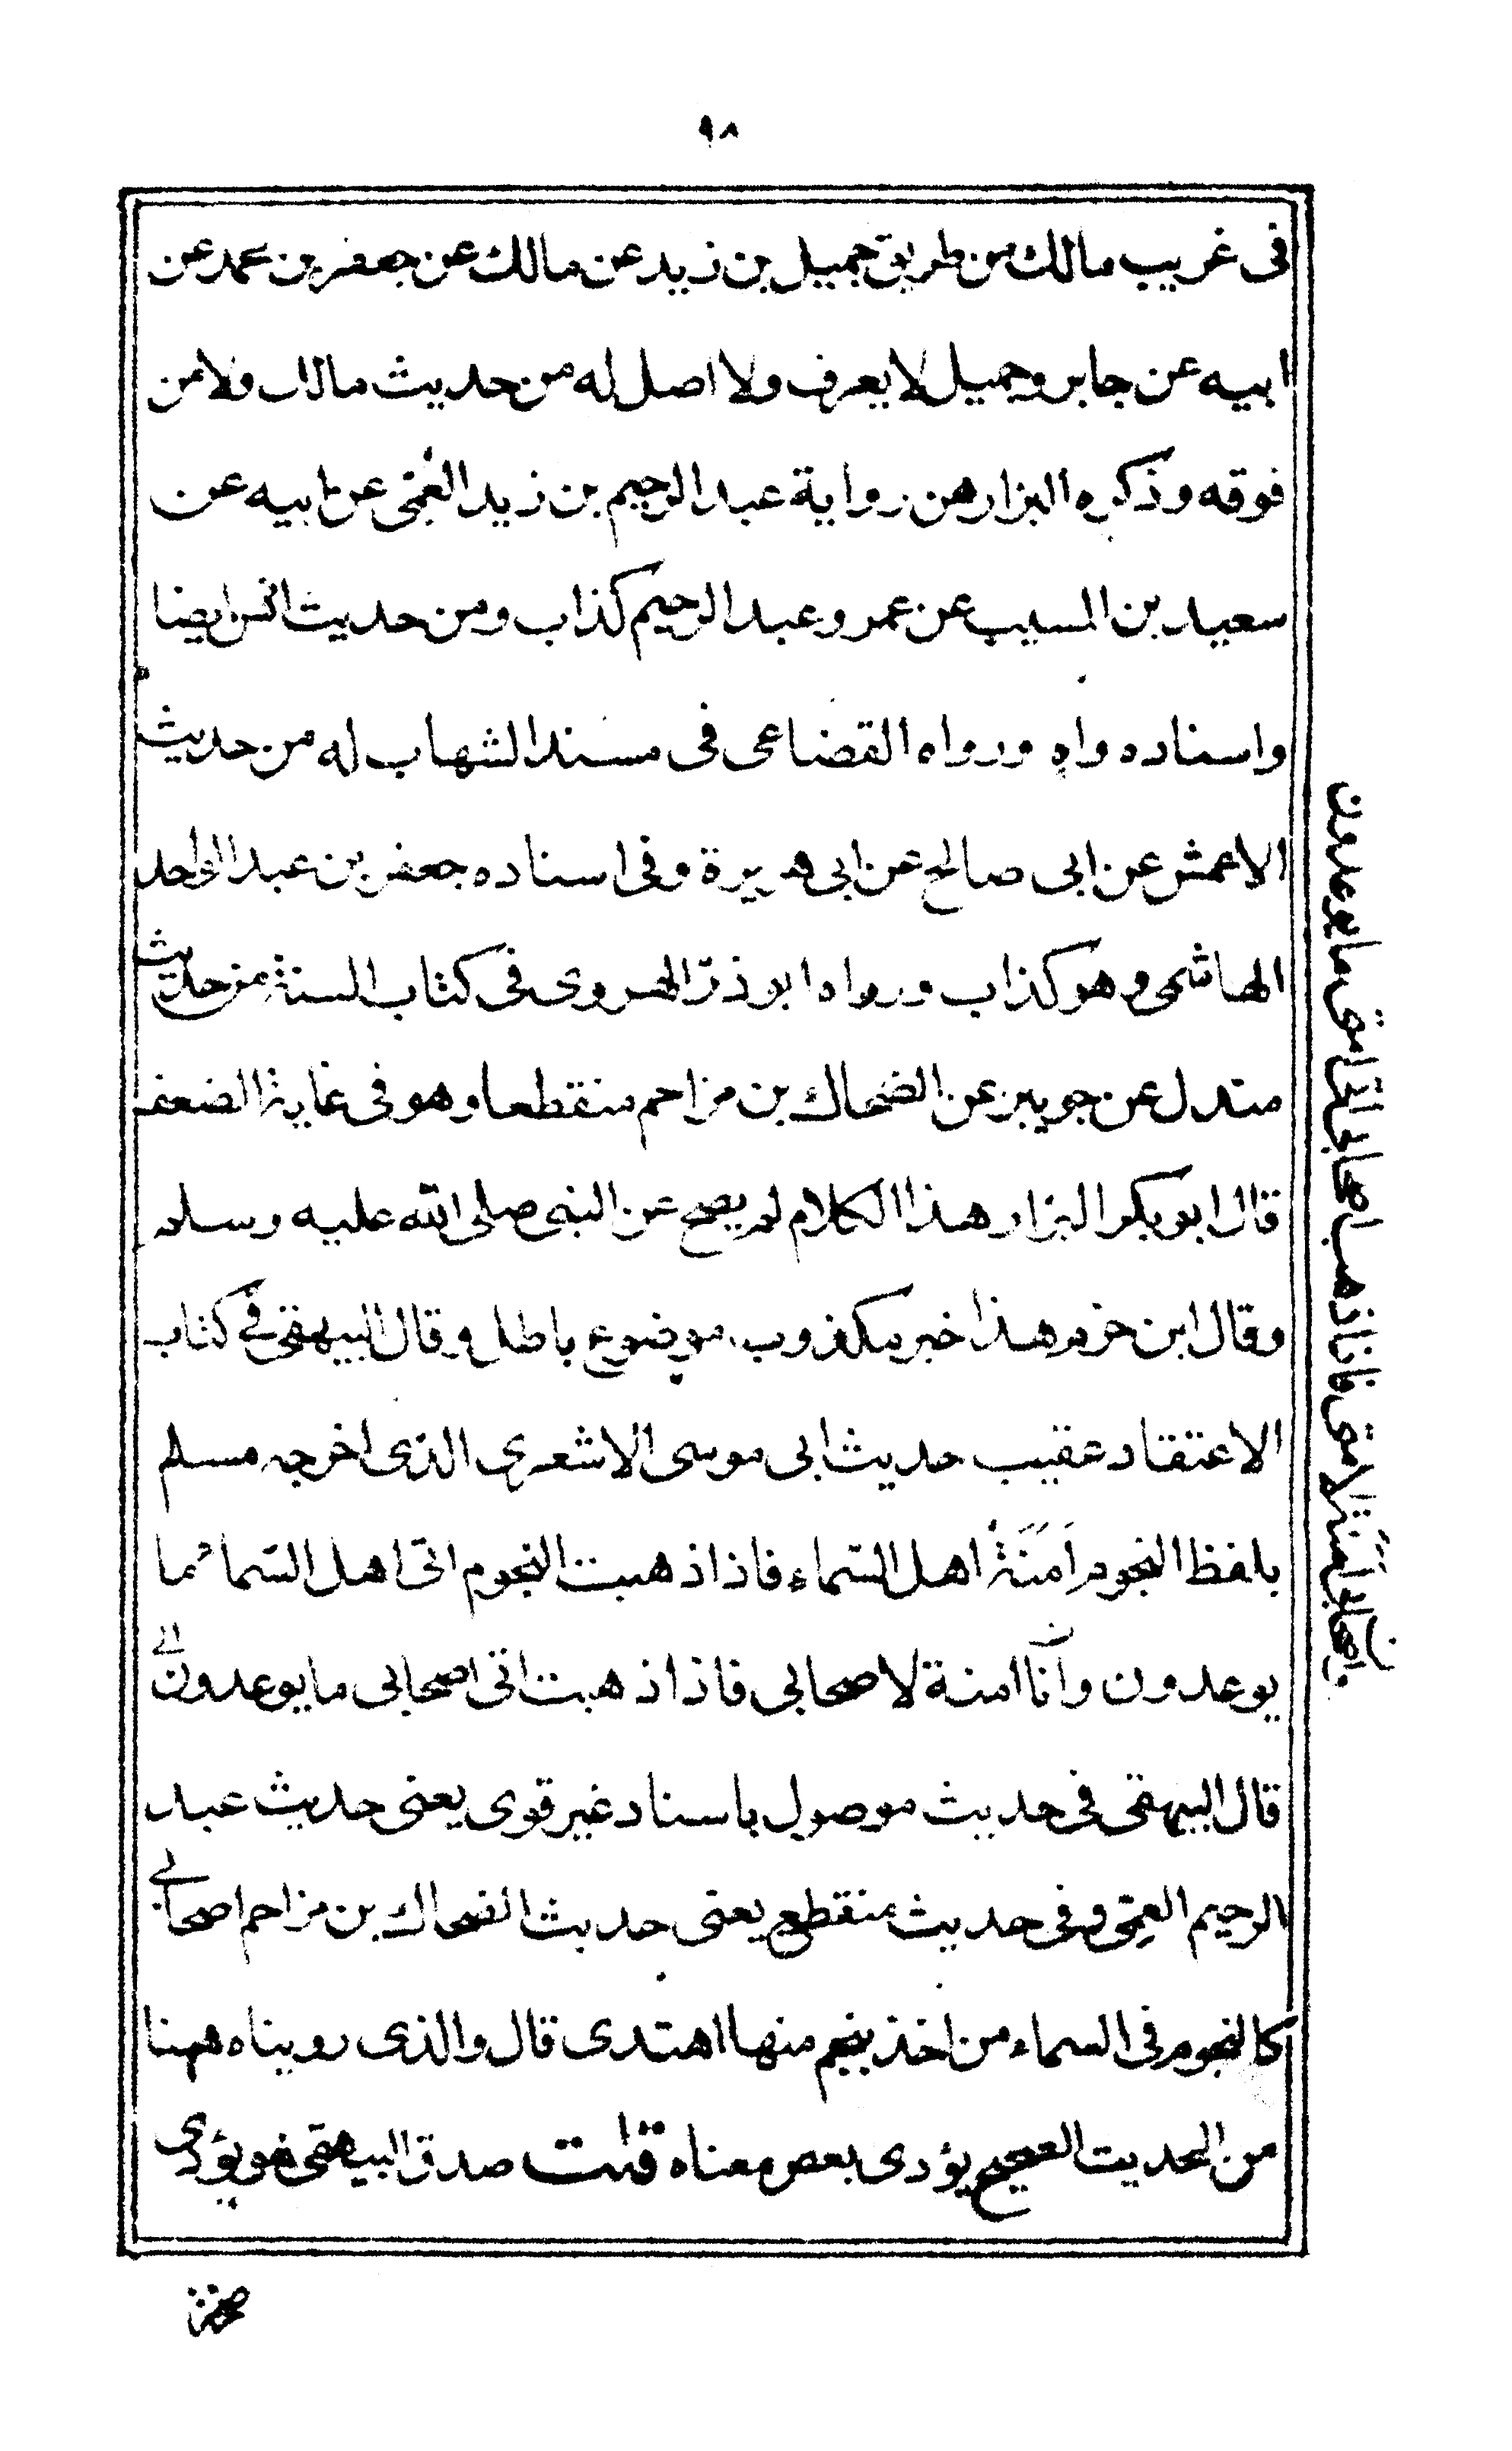 ٩٨
فى غريب مالك من طريق جميل بن زيد عن مالك عن جعفر بن محمد عن
ابيه عن جابر وجميل لا يعرف ولا اصل له من حديث مالك ولا من
فوقه وذكره البزار من رواية عبد الرحيم بن زيد العمى عن ابيه عن
سعيد بن المسيب عن عمر وعبد الرحيم كذاب ومن حديث انس ايضا
واسناده واه ورواه القضاعى فى مسند الشهاب له من حديث
الاعمش عن ابى صالح عن ابى هريرة وفى اسناده جعفر بن عبد الواحد
الهاشمى وهو كذاب ورواه ابو ذرّ الهروى فى كتاب السنة من حديث
مندل عن جويبر عن الضحاك بن مزاحم منقطعا وهو فى غاية الضعف
قال ابو بكر البزار هذا الكلام لم يصح عن النبى صلى الله عليه وسلم
وقال ابن حزم هذا خبر مكذوب موضوع باطل وقال البيهقى فى كتاب
الاعتقاد عقيب حديث ابى موسى الاشعرى الذى اخرجه مسلم
بلفظ النجوم اَمَنَةُ اهل السّماء فاذا ذهبت النجوم اتى اهل السّماء ما
يوعدون وأنا امنة لاصحابى فاذا ذهبت اتى اصحابى ما يوعدون الى
قال البيهقى فى حديث موصول باسناد غير قوى يعنى حديث عبد
الرحيم العمّى وفى حديث منقطع يعنى حديث الضحاك بن مزاحم اصحابى
كالنجوم فى السماء من اخذ بنجم منها اهتدى قال والذى رويناه ههنا
من الحديث الصحيح يؤدى بعض معناه قلت صدق البيهقى هو يؤدى
واصحابى امنة لامتى فاذا ذهب اصحابى اتى امتى ما يوعدون